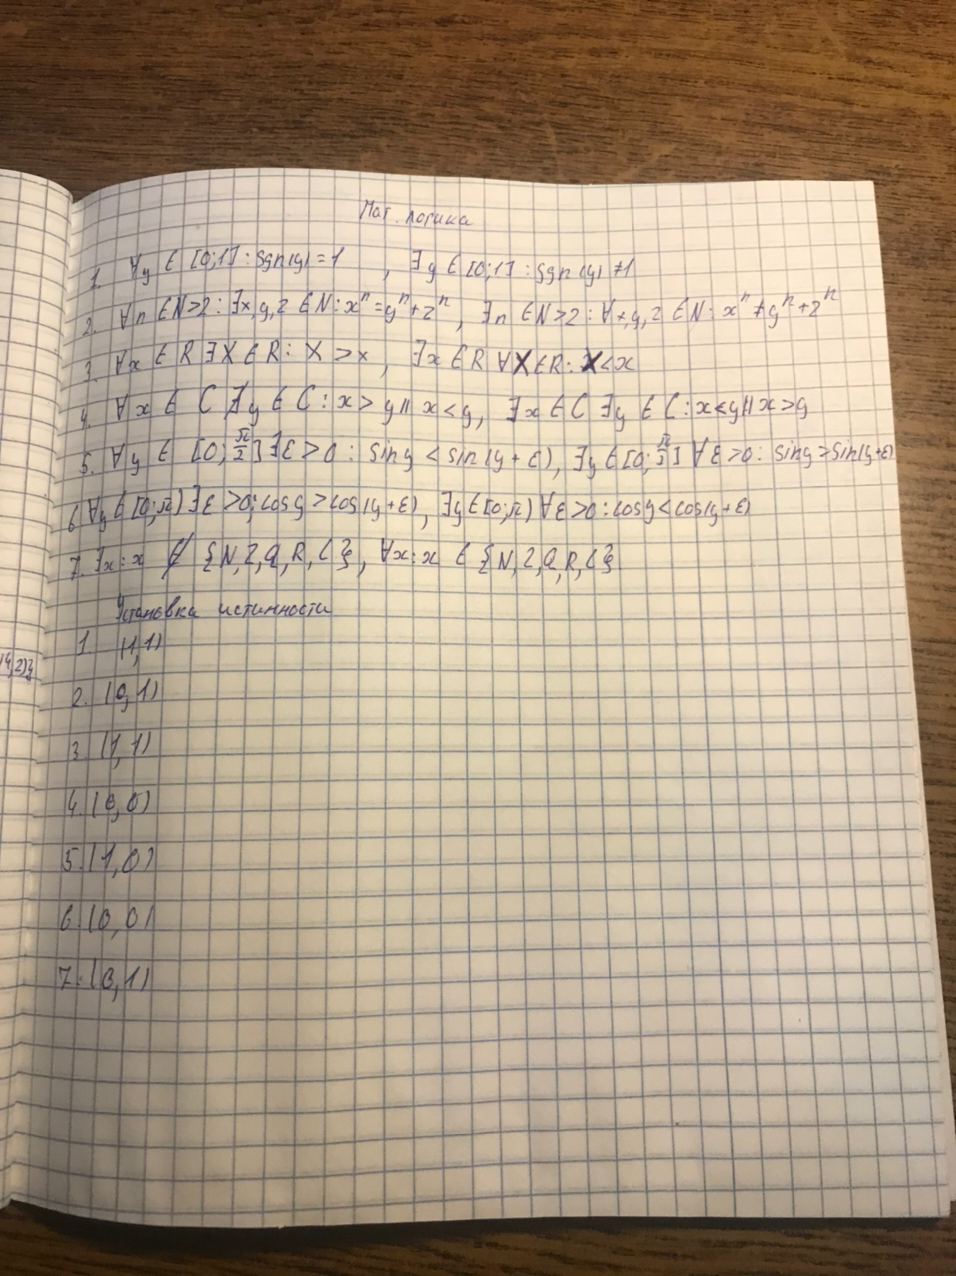 Мат. логика
1. ∀y ∈ [0;1] : sgn(y) = 1 , ∃y ∈ [0;1] : sgn(y) ≠ 1
2. ∀n ∈ N>2 : ∃x,y,z ∈ N : xⁿ = yⁿ + zⁿ, ∃n ∈ N>2 : ∀x,y,z ∈ N : xⁿ ≠ yⁿ + zⁿ
3. ∀x ∈ R ∃X ∈ R : X > x, ∃x ∈ R ∀X ∈ R : X < x
4. ∀x ∈ C ∄y ∈ C : x > y || x < y, ∃x ∈ C ∃y ∈ C : x < y || x > y
5. ∀y ∈ [0; π/2] ∃ε > 0 : sin y < sin(y + ε), ∃y ∈ [0; π/2] ∀ε > 0 : sin y > sin(y + ε)
6. ∀y ∈ [0; π) ∃ε > 0 : cos y > cos(y + ε), ∃y ∈ [0; π) ∀ε > 0 : cos y < cos(y + ε)
7. ∃x : x ∉ {N, Z, Q, R, C}, ∀x : x ∈ {N, Z, Q, R, C}
Установка истинности
1. (1,1)
(4,2)}
2. (0,1)
3. (1,1)
4. (0,0)
5. (1,0)
6. (0,0)
7. (0,1)